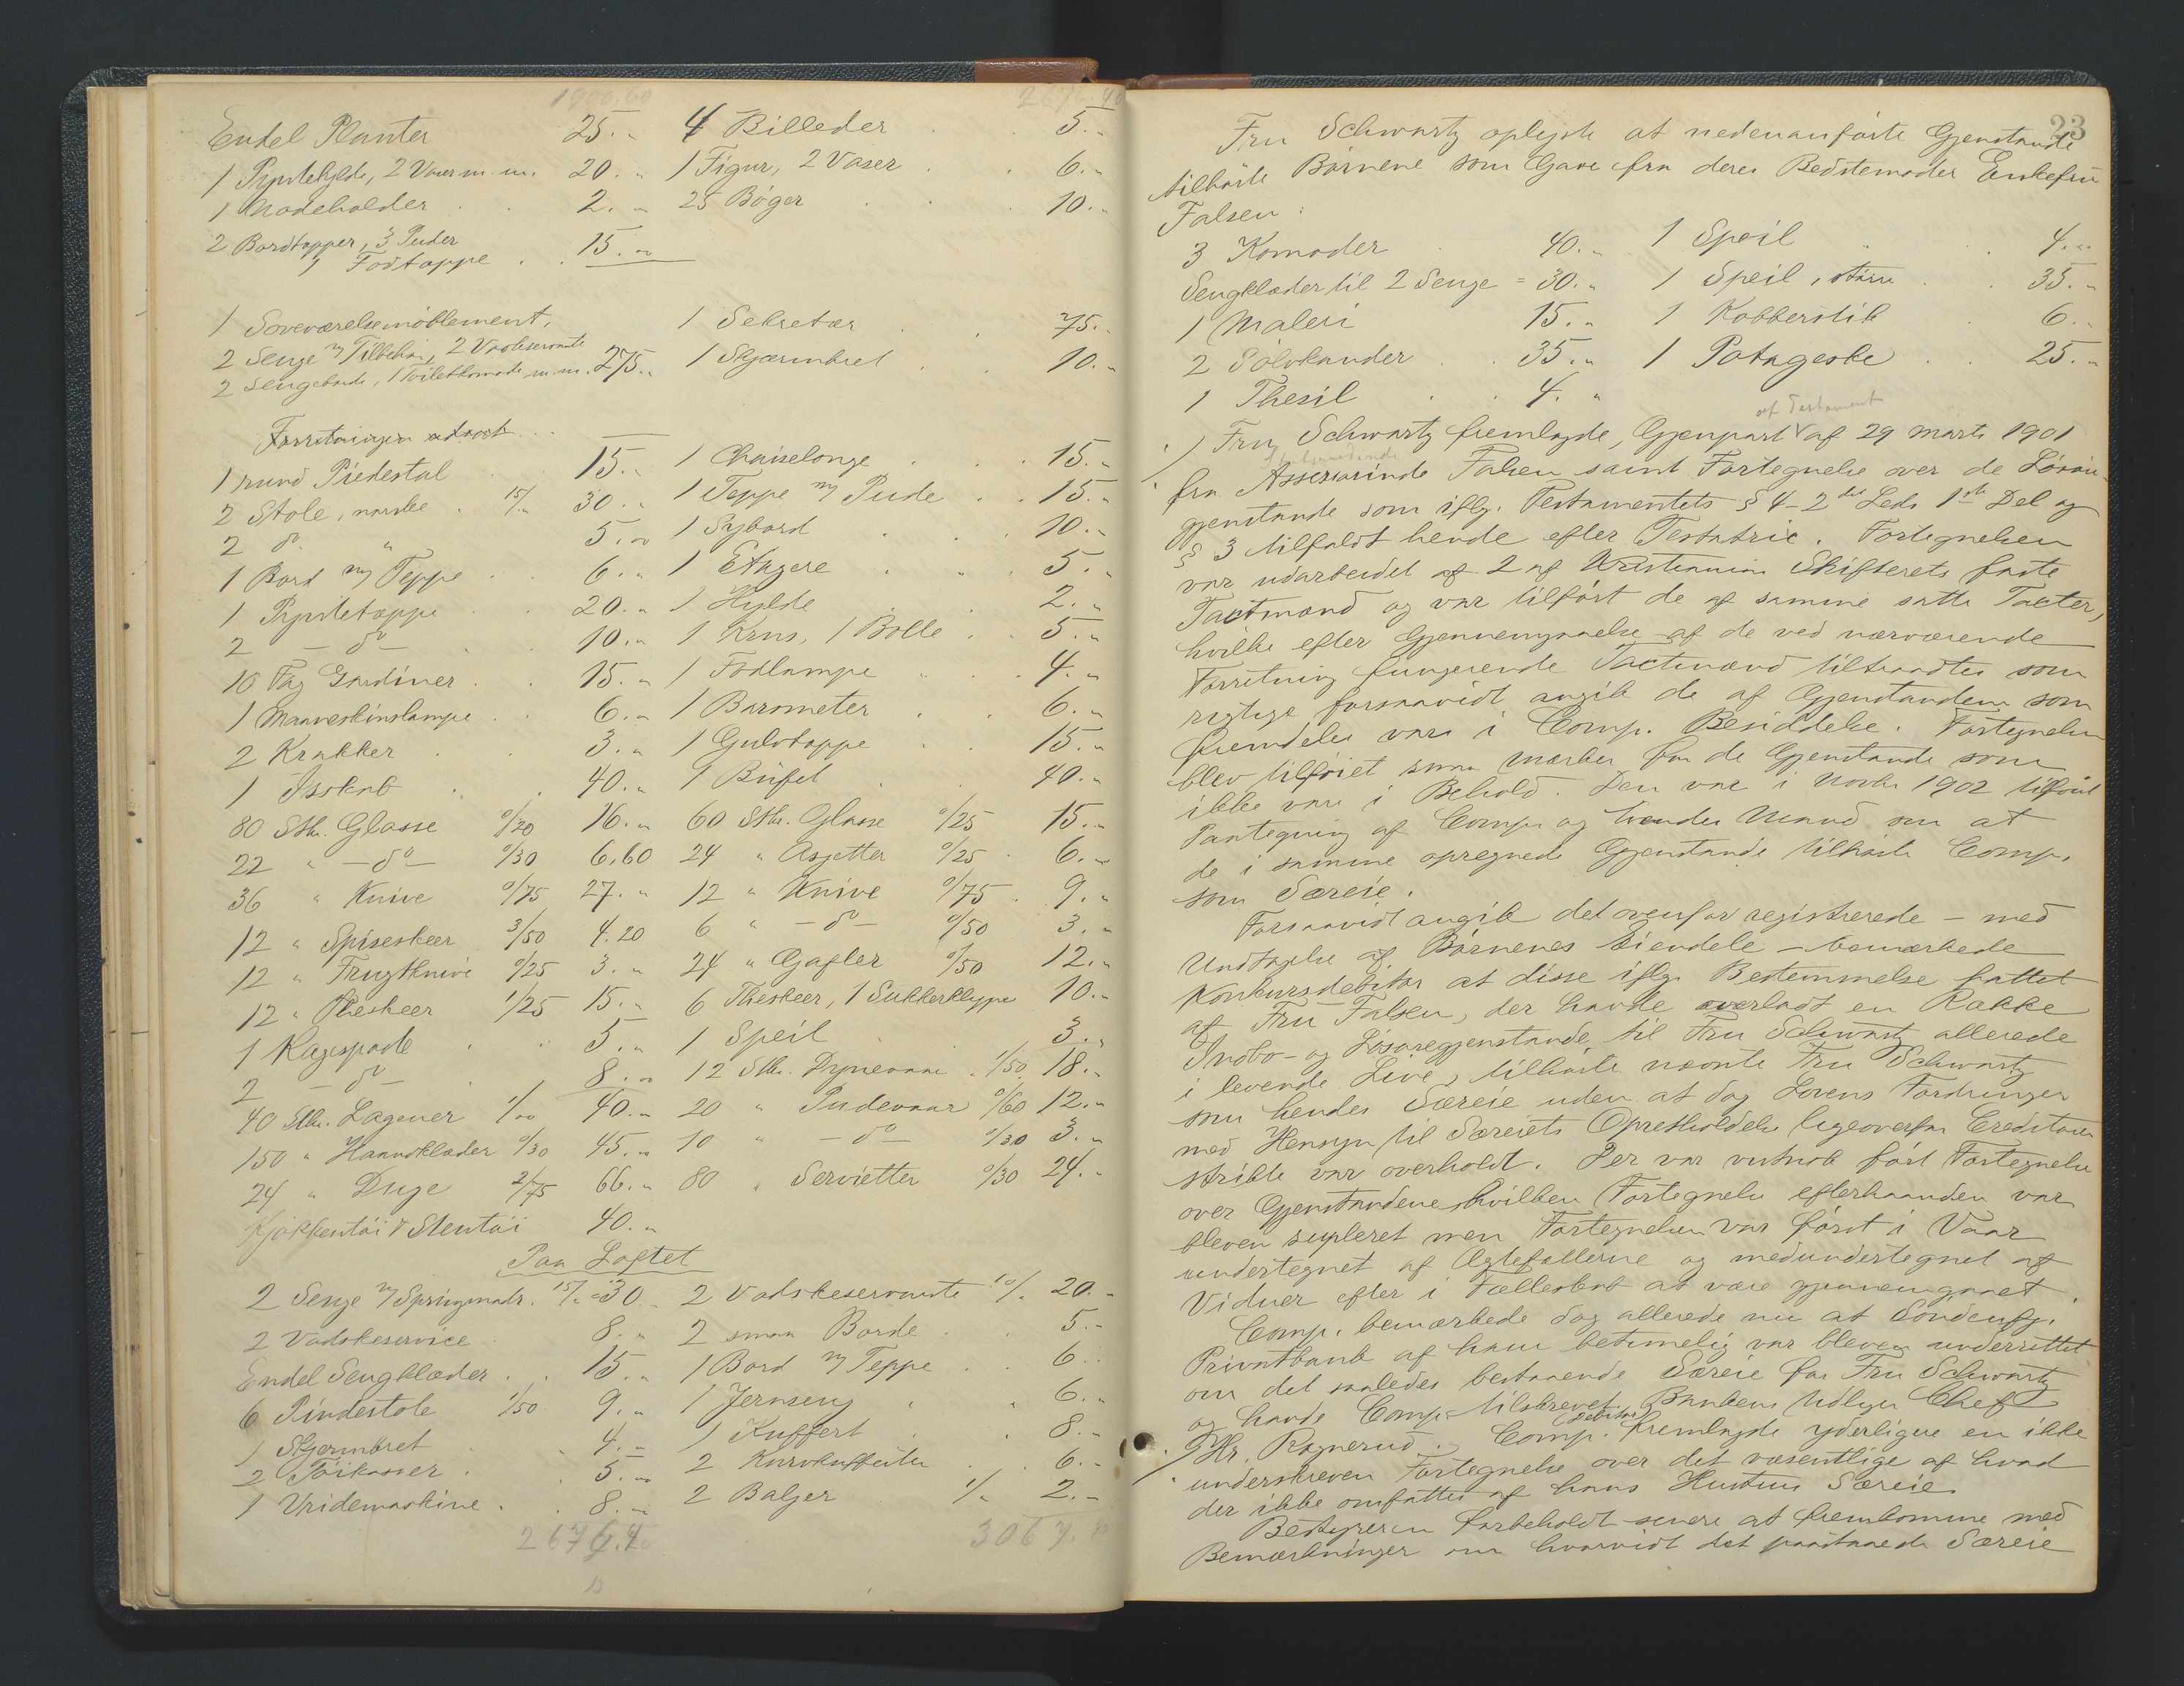 1900.60 2676.40
Endel Planter 25.„ 4 Billeder 5.„
1 Pyntehylde, 2 Vaser m.m. 20.„ 1 Figur, 2 Vaser 6.„
1 Nodeholder 2.„ 25 Bøger 10.„
2 Bordtæpper, 3 Puder
1 Fodtæppe 15.„
1 Soveværelsemøblement,
2 Senge m/ Tilbehør, 2 Vaskeservante
2 Sengeborde, 1 Toiletkomode m.m. 275.„
1 Sekretær 75.„
1 Skjærmbret 10.„
Forretningen udsat
1 rund Piedestal 15.„ 1 Chaiselonge 15.„
2 Stole, norske 15/„ 30.„ 1 Teppe m/ Pude 15.„
2 do „ 5.„ 1 Sybord 10.„
1 Bord m/ Teppe 6.„ 1 Etagere 5.„
1 Pyntetæppe 20.„ 1 Hylde 2.„
2 – do – 10.„ 1 Krus, 1 Bolle 5.„
10 Fag Gardiner 15.„ 1 Fodlampe 4.„
1 Maaneskinslampe 6.„ 1 Barometer 6.„
2 Krakker 3.„ 1 Gulvtæppe 15.„
1 Isskab 40.„ 1 Büfet 40.„
80 Stk. Glasse 0/20 16.„ 60 Stk. Glasse 0/25 15.„
22 „ – do – 0/30 6.60 24 „ Asjetter 0/25 6.„
36 „ Knive 0/75 27.„ 12 „ Knive 0/75 9.„
12 „ Spiseskeer 3/50 4.20 6 „ – do – 0/50 3.„
12 „ Frugtknive 0/25 3.„ 24 „ Gafler 0/50 12.„
12 „ Theskeer 1/25 15.„ 6 Theskeer, 1 Sukkerklype 10.„
1 Kagespade 5.„ 1 Speil 3.„
2 – do – 8.„ 12 Stk. Dynevaar 1/50 18.„
40 Stk. Lagener 1/„ 40.„ 20 „ Pudevaar 0/60 12.„
150 „ Haandklæder 0/30 45.„ 10 „ – do – 0/30 3.„
24 „ Duge 2/75 66.„ 80 „ Servietter 0/30 24.„
Kjøkkentøi & Stentøi 40.„
Paa Loftet
2 Senge m/ Springmadr. 15/„ = 30 2 Vadskeservante 10/„ 20.„
2 Vadskeservice 8.„ 2 smaa Borde 5.„
Endel Sengklæder 15.„ 1 Bord m/ Teppe 6.„
6 Pindestole 1/50 9.„ 1 Jernseng 6.„
1 Skjermbret 4.„ 1 Kuffert 8.„
2 Tøikasser 5.„ 2 Kurvkufferter 6.„
1 Vridemaskine 8.„ 2 Baljer 1/„ 2.„
2676.40 3067.40
23
Fru Schwartz oplyste at nedenanførte Gjenstande
tilhørte Børnene som Gave fra deres Bedstemoder Enkefru
Falsen:
3 Komoder 40.„ 1 Speil 4.„
Sengklæder til 2 Senge = 30.„ 1 Speil, større 35.„
1 Maleri 15.„ 1 Kobberstik 6.„
2 Sølvkander 35.„ 1 Potageske 25.„
1 Thesil 4.„
af Testament
Fru Schwartz fremlagde Gjenpart af 29 marts 1901
fra Assessorinde Falsen samt Fortegnelse over de Løsøre-
gjenstande som iflg. Testamentets § 4 – 2det Leds 1ste Del og
§ 3 tilfaldt hende efter Testatrix. Fortegnelsen
var udarbeidet af 2 af Kristiania Skifterets faste
Taxtmænd og var tilført de af samme satte Taxter,
hvilke efter Gjennemgaaelse af de ved nærværende
Forretning fungerende Taxtmænd tiltraadtes som
rigtige forsaavidt angik de af Gjenstandene som
fremdeles vare i Comp. Besiddelse. Fortegnelsen
blev tilføiet smaa Mærker for de Gjenstande som
ikke vare i Behold. Den var i Novbr 1902 tilføiet
Paategning af Comp. og hendes Mand om at
de i samme opregnede Gjenstande tilhørte Comp.
som Særeie.
Forsaavidt angik det ovenfor registrerede – med
Undtagelse af Børnenes Eiendele – bemærkede
Konkursdebitor at disse iflg. Bestemmelse fattet
af Fru Falsen, der havde overladt en Række
Indbo- og Løsøregjenstande til Fru Schwartz allerede
i levende Live, tilhørte nævnte Fru Schwartz
som hendes Særeie uden at dog Lovens Fordringer
med Hensyn til Særeiets Opretholdelse ligeoverfor Creditorer
strikte var overholdt. Der var vistnok ført Fortegnelse
over Gjenstandene hvilken Fortegnelse efterhaanden var
bleven supleret men Fortegnelsen var først i Vaar
undertegnet af Ægtefællerne og medundertegnet af
Vidner efter i Fællesskab at være gjennemgaaet.
Comp. bemærkede dog allerede nu at Søndenfj.
Privatbank af ham betimelig var bleven underrettet
om det saaledes bestaaende Særeie for Fru Schwartz
og havde Comp. tilskrevet Bankens Chef
Hr. Rognerud. Comp. Debitor fremlagde yderligere en ikke
underskreven Fortegnelse over det væsentlige af hvad
der ikke omfattes af hans Hustrus Særeie.
Bestyreren forbeholdt senere at fremkomme med
Bemærkninger om hvorvidt det paastaaede Særeie